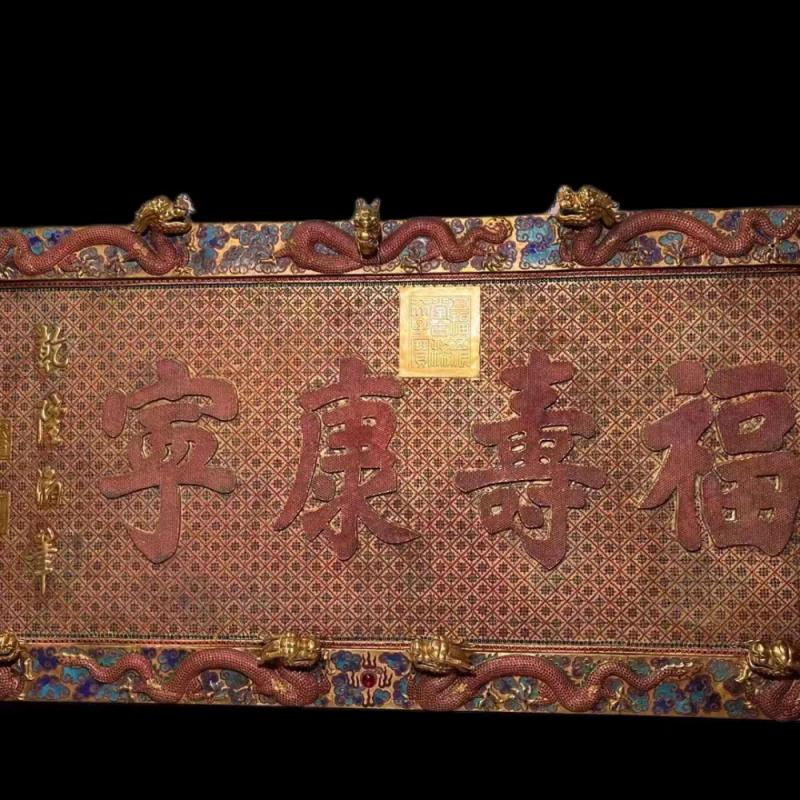 福壽康寧
乾隆御筆